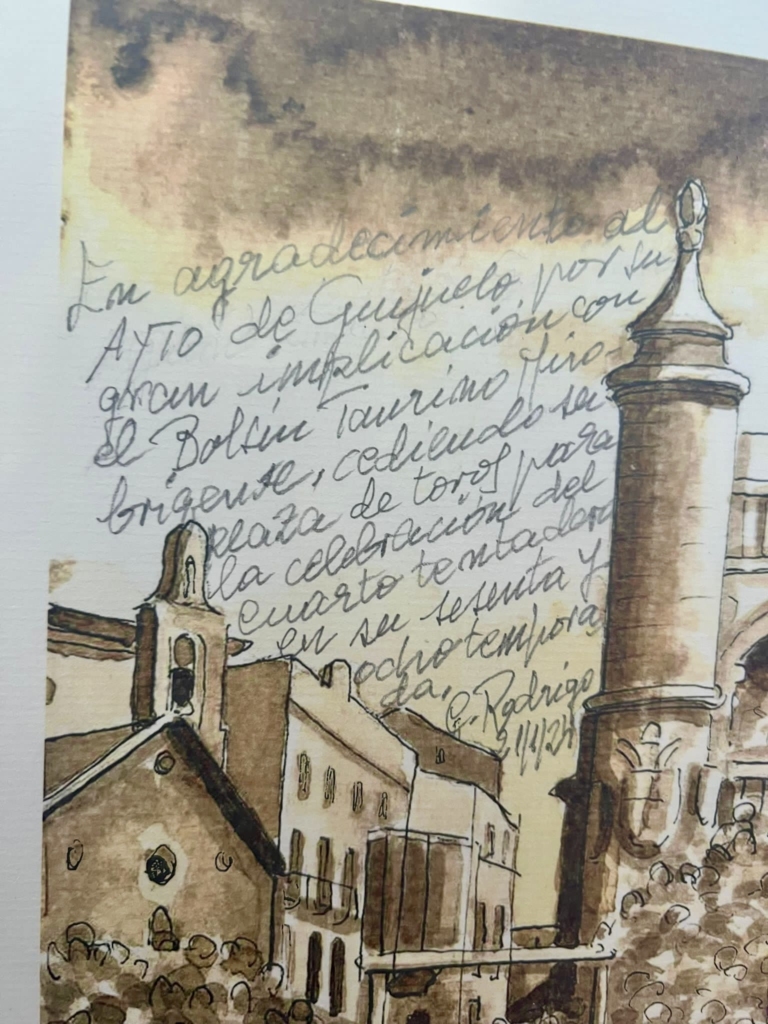 En agradecimiento al
AYTO de Guijuelo por su
gran implicación con
el Bolsín Taurino Miro-
brigense, cediendo su
plaza de toros para
la celebración del
cuarto tentadero
en su sesenta y
ocho tempora
da.
G. Rodrigo
21/1/24